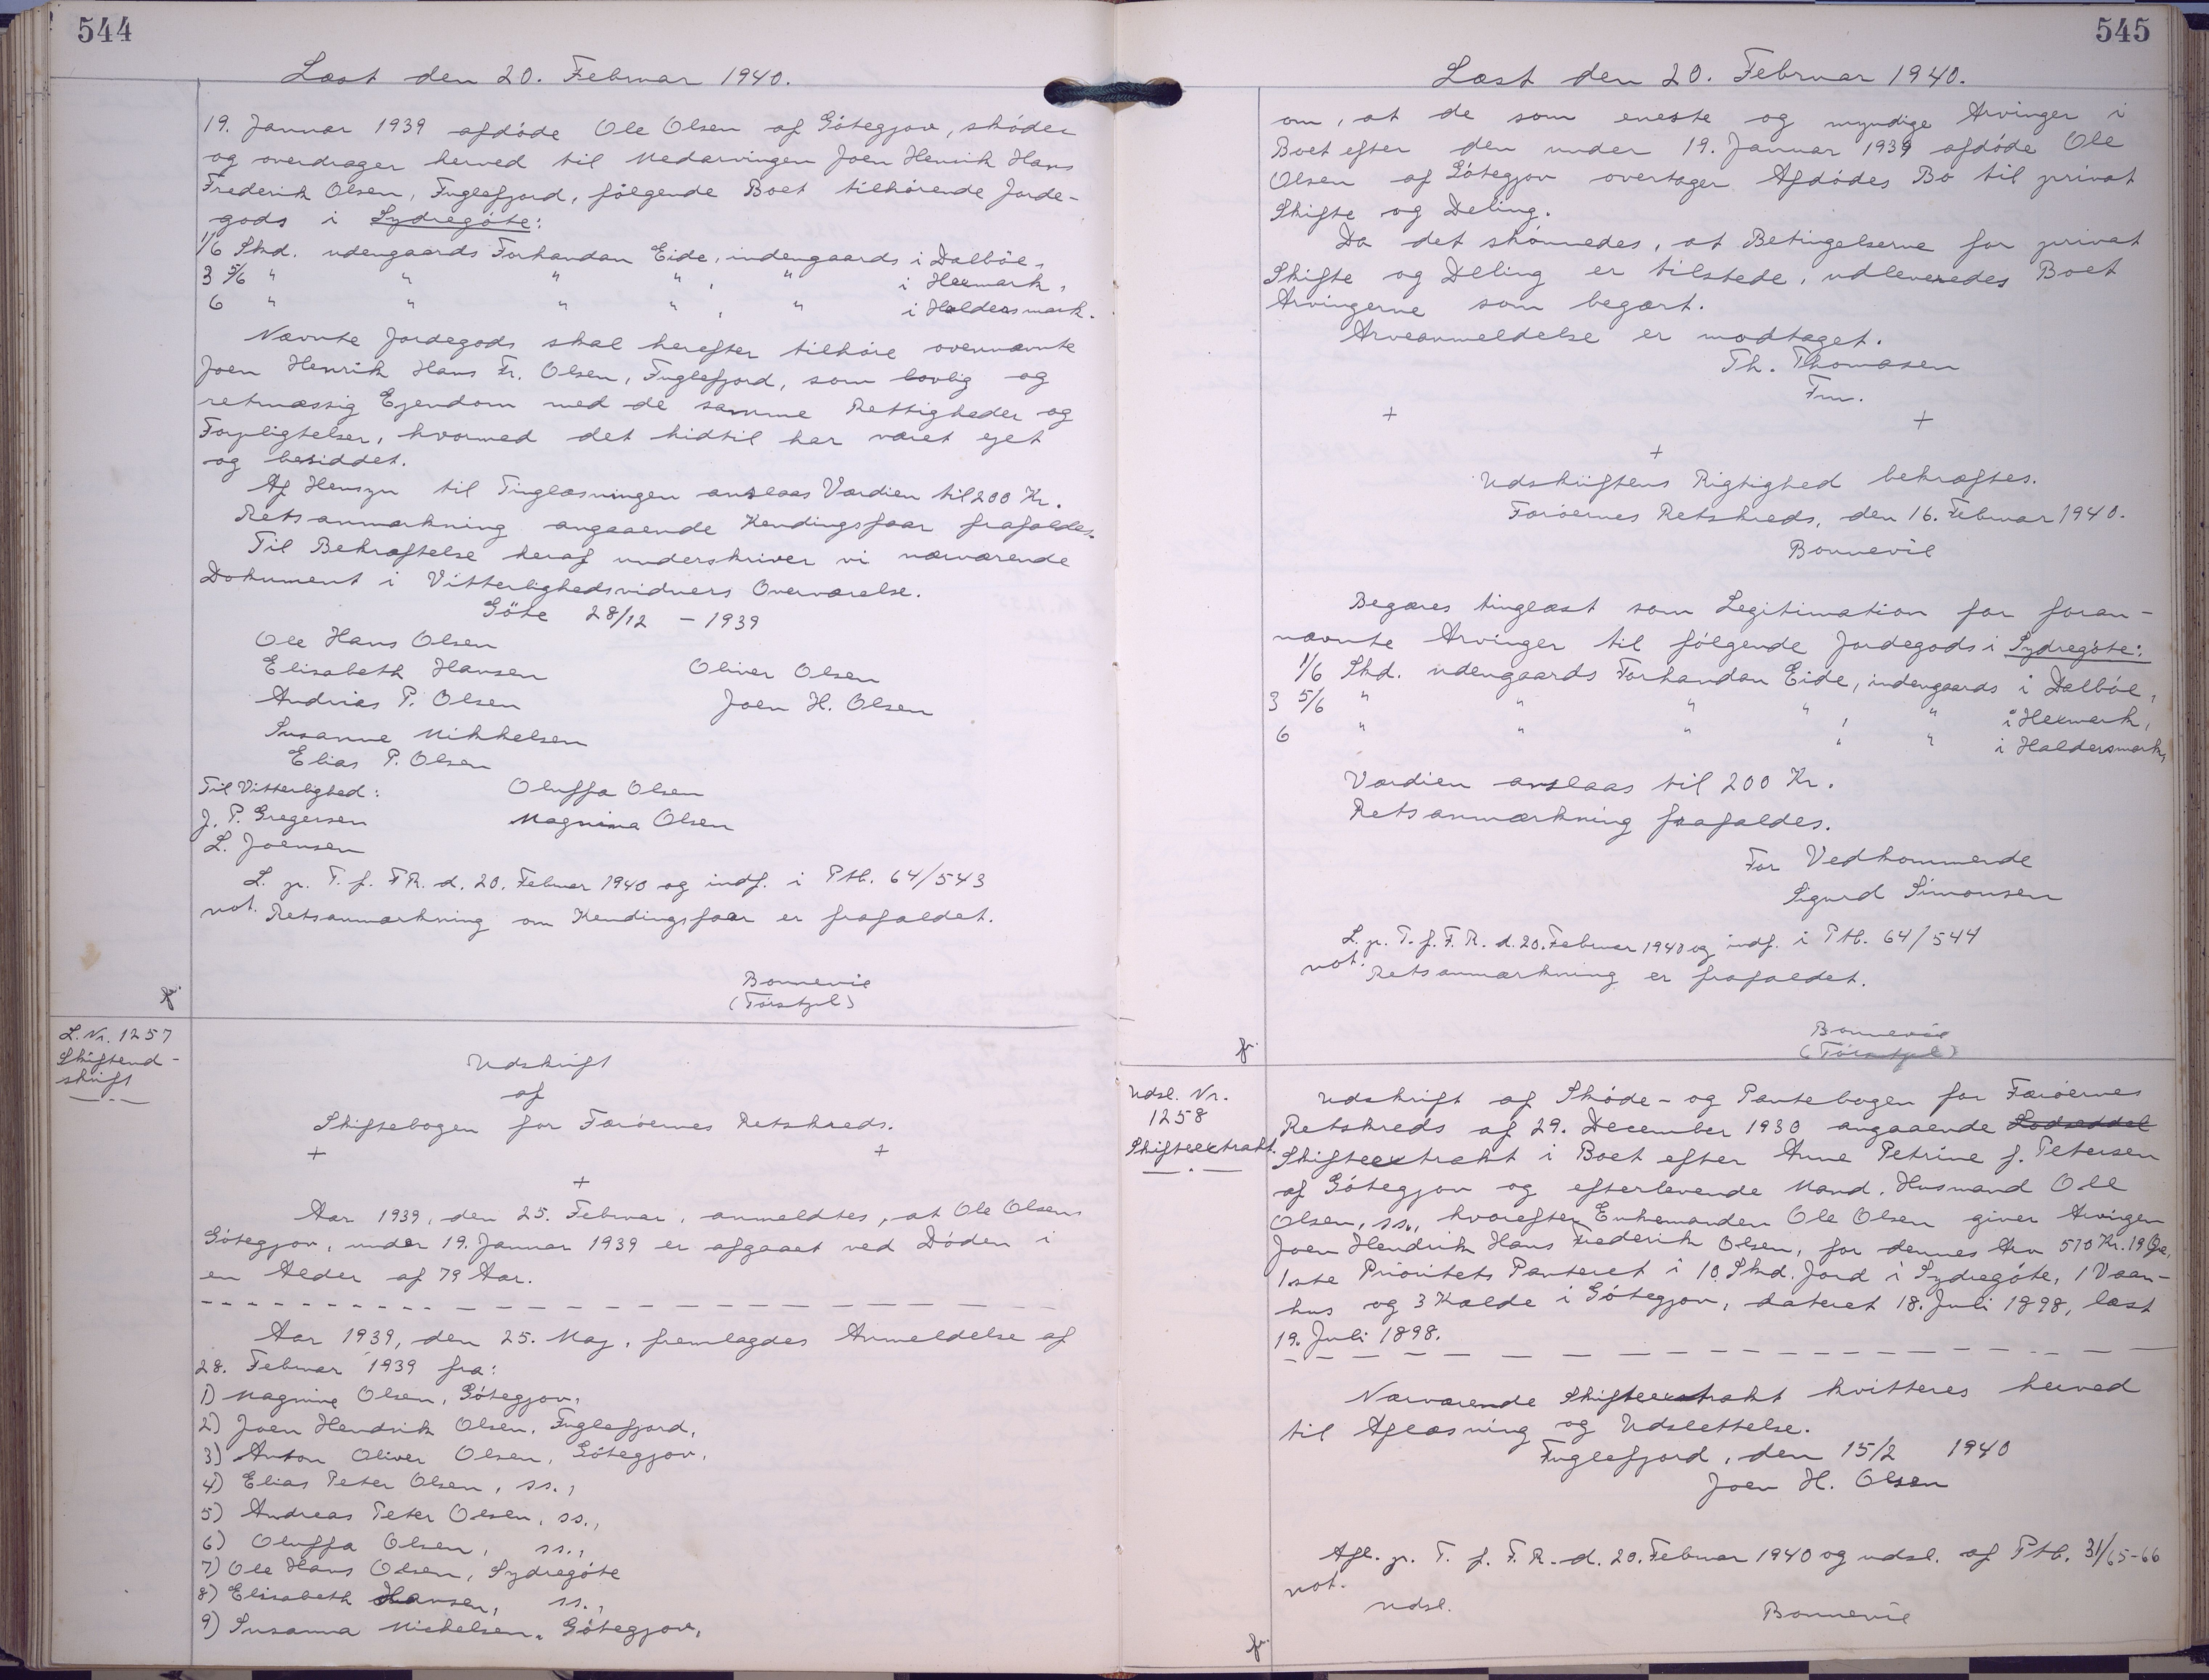 544
Læst den 20. Februar 1940.
19. Januar 1939 afdøde Ole Olsen af Götegjov, skøder
og overdrager herved til Medarvingen Joen Henrik Hans
Frederik Olsen, Fuglefjord, følgende Boet tilhørende Jorde-
gods i Sydregöte:
1/6 Skd. udengaards Forhandan Eide, indengaards i Dalböe,
3 5/6 " " " " , " i Hexmark,
6 " " " " , " i Haldersmark.
Nævnte Jordegods skal herefter tilhøre ovennævnte
Joen Henrik Hans Fr. Olsen, Fuglefjord, som lovlig og
retmæssig Ejendom med de samme Rettigheder og
Forpligtelser, hvormed det hidtil har været ejet
og besiddet.
Af Hensyn til Tinglæsningen anslaas Værdien til 200 Kr.
Retsanmærkning angaaende Kendingsfaar frafaldes.
Til Bekræftelse heraf underskriver vi nærværende
Dokument i Vitterlighedsvidners Overværelse.
Göte 28/12 - 1939
Ole Hans Olsen
Elisabeth Hansen Oliver Olsen
Andrias P. Olsen Joen H. Olsen
Susanne Mikkelsen
Elias P. Olsen
Til Vitterlighed: Oluffa Olsen
J. P. Gregersen Magnina Olsen
L. Joensen
L. p. T. f. F.R. d. 20. Februar 1940 og indf. i Ptb. 64/543
not. Retsanmærkning om Kendingsfaar er frafaldet.
Bonnevie
(Tórstjel)
L. Nr. 1257
Skifteud-
skrift
Udskrift
af
Skiftebogen for Færøernes Retskreds.
+ +
+
Aar 1939, den 25. Februar, anmeldtes, at Ole Olsen
Götegjov, under 19. Januar 1939 er afgaaet ved Døden i
en Alder af 79 Aar.
Aar 1939, den 25. Maj, fremlagdes Anmeldelse af
28. Februar 1939 fra:
1) Magnine Olsen, Götegjov,
2) Joen Hendrik Olsen, Fuglefjord,
3) Anton Oliver Olsen, Götegjov,
4) Elias Peter Olsen, ss.,
5) Andreas Peter Olsen, ss.,
6) Oluffa Olsen, ss.,
7) Ole Hans Olsen, Sydregöte
8) Elisabeth Hansen, ss.,
9) Susanna Mickelsen, Götegjov,
545
Læst den 20. Februar 1940.
om, at de som eneste og myndige Arvinger i
Boet efter den under 19. Januar 1939 afdøde Ole
Olsen af Götegjov overtager Afdødes Bo til privat
Skifte og Deling.
Da det skønnedes, at Betingelserne for privat
Skifte og Deling er tilstede, udleveredes Boet
Arvingerne som begært.
Arveanmeldelse er modtaget.
Th. Thomasen
Fm.
+ +
+
Udskriftens Rigtighed bekræftes.
Færøernes Retskreds, den 16. Februar 1940.
Bonnevie
Begæres tinglæst som Legitimation for foran-
nævnte Arvinger til følgende Jordegods i Sydregöte:
1/6 Skd. udengaards Forhandan Eide, indengaards i Dalböe,
3 5/6 " " " " , " i Hexmark,
6 " " " " " i Haldersmark,
Værdien anslaas til 200 Kr.
Retsanmærkning frafaldes.
For Vedkommende
Sigurd Simonsen
L. p. T. f. F. R. d. 20. Februar 1940 og indf. i Ptb. 64/544
not. Retsanmærkning er frafaldet.
Bonnevie
(Tórstjel)
Udsl. Nr.
1258
Skifteextrakt.
Udskrift af Skøde- og Pantebogen for Færøernes
Retskreds af 29. December 1930 angaaende Lodseddel
Skifteextrakt i Boet efter Anne Petrine f. Petersen
af Götegjov og efterlevende Mand, Husmand Ole
Olsen, ss., hvorefter Enkemanden Ole Olsen giver Arvingen
Joen Hendrik Hans Frederik Olsen, for dennes Arv 510 Kr. 19 Øre,
1ste Prioritets Panteret i 10 Skd. Jord i Sydregöte, 1 Vaan-
hus og 3 Kælde i Götegjov, dateret 18. Juli 1898, læst
19. Juli 1898.
Nærværende Skifteextrakt kvitteres herved
til Aflæsning og Udslettelse.
Fuglefjord, den 15/2 1940
Joen H. Olsen
Afl. p. T. f. F. R. d. 20. Februar 1940 og udsl. af Ptb. 31/65-66
not.
udsl. Bonnevie